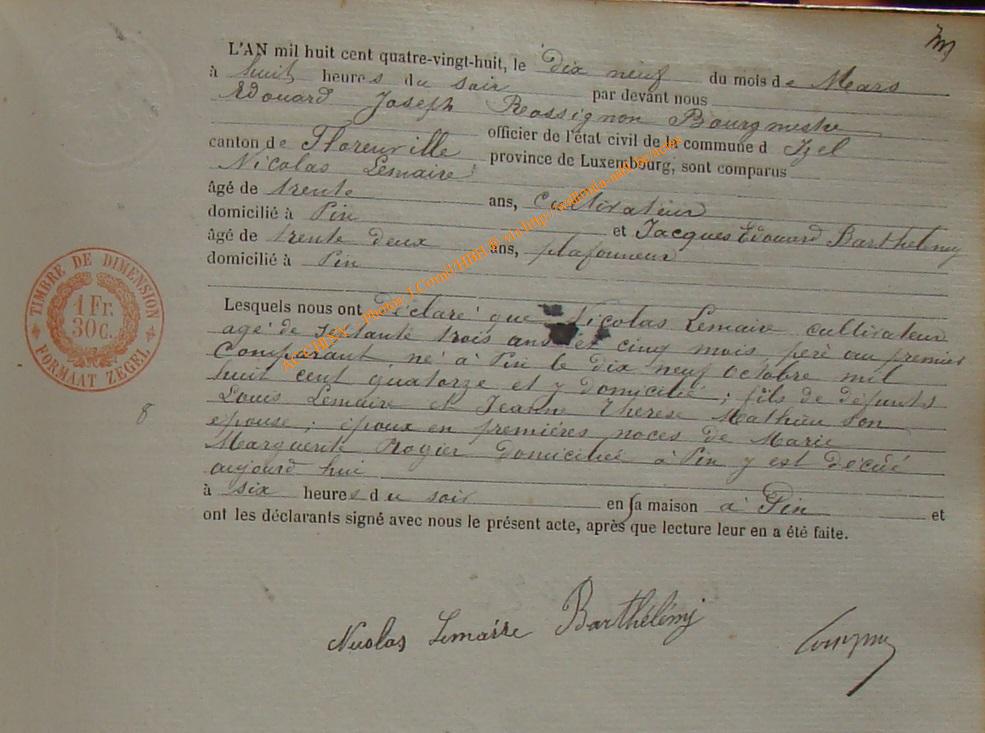 L'AN mil huit cent quatre-vingt-huit, le dix neuf du mois de Mars
à huit heures du soir par devant nous
Edouard Joseph Rossignon Bourgmestre
officier de l'état civil de la commune d Izel
canton de Florenville province de Luxembourg, sont comparus
Nicolas Lemaire
âgé de trente ans, cultivateur
domicilié à Pin et Jacques Edouard Barthélemy
âgé de trente deux ans, plafonneur
domicilié à Pin
Lesquels nous ont déclaré que Nicolas Lemaire cultivateur
agé de septante trois ans et cinq mois, père au premier
Comparant né à Pin le dix neuf Octobre mil
huit cent quatorze et y domicilié ; fils de défunts
Louis Lemaire et Jeanne Thérèse Mathieu son
épouse ; époux en premières noces de Marie
Marguerite Rogier domiciliée à Pin y est décédé
aujourd'hui
à six heures du soir en sa maison à Pin et
ont les déclarants signé avec nous le présent acte, après que lecture leur en a été faite.
Nicolas Lemaire Barthélémy
TIMBRE DE DIMENSION
1 Fr.
30c.
FORMAAT ZEGEL
8